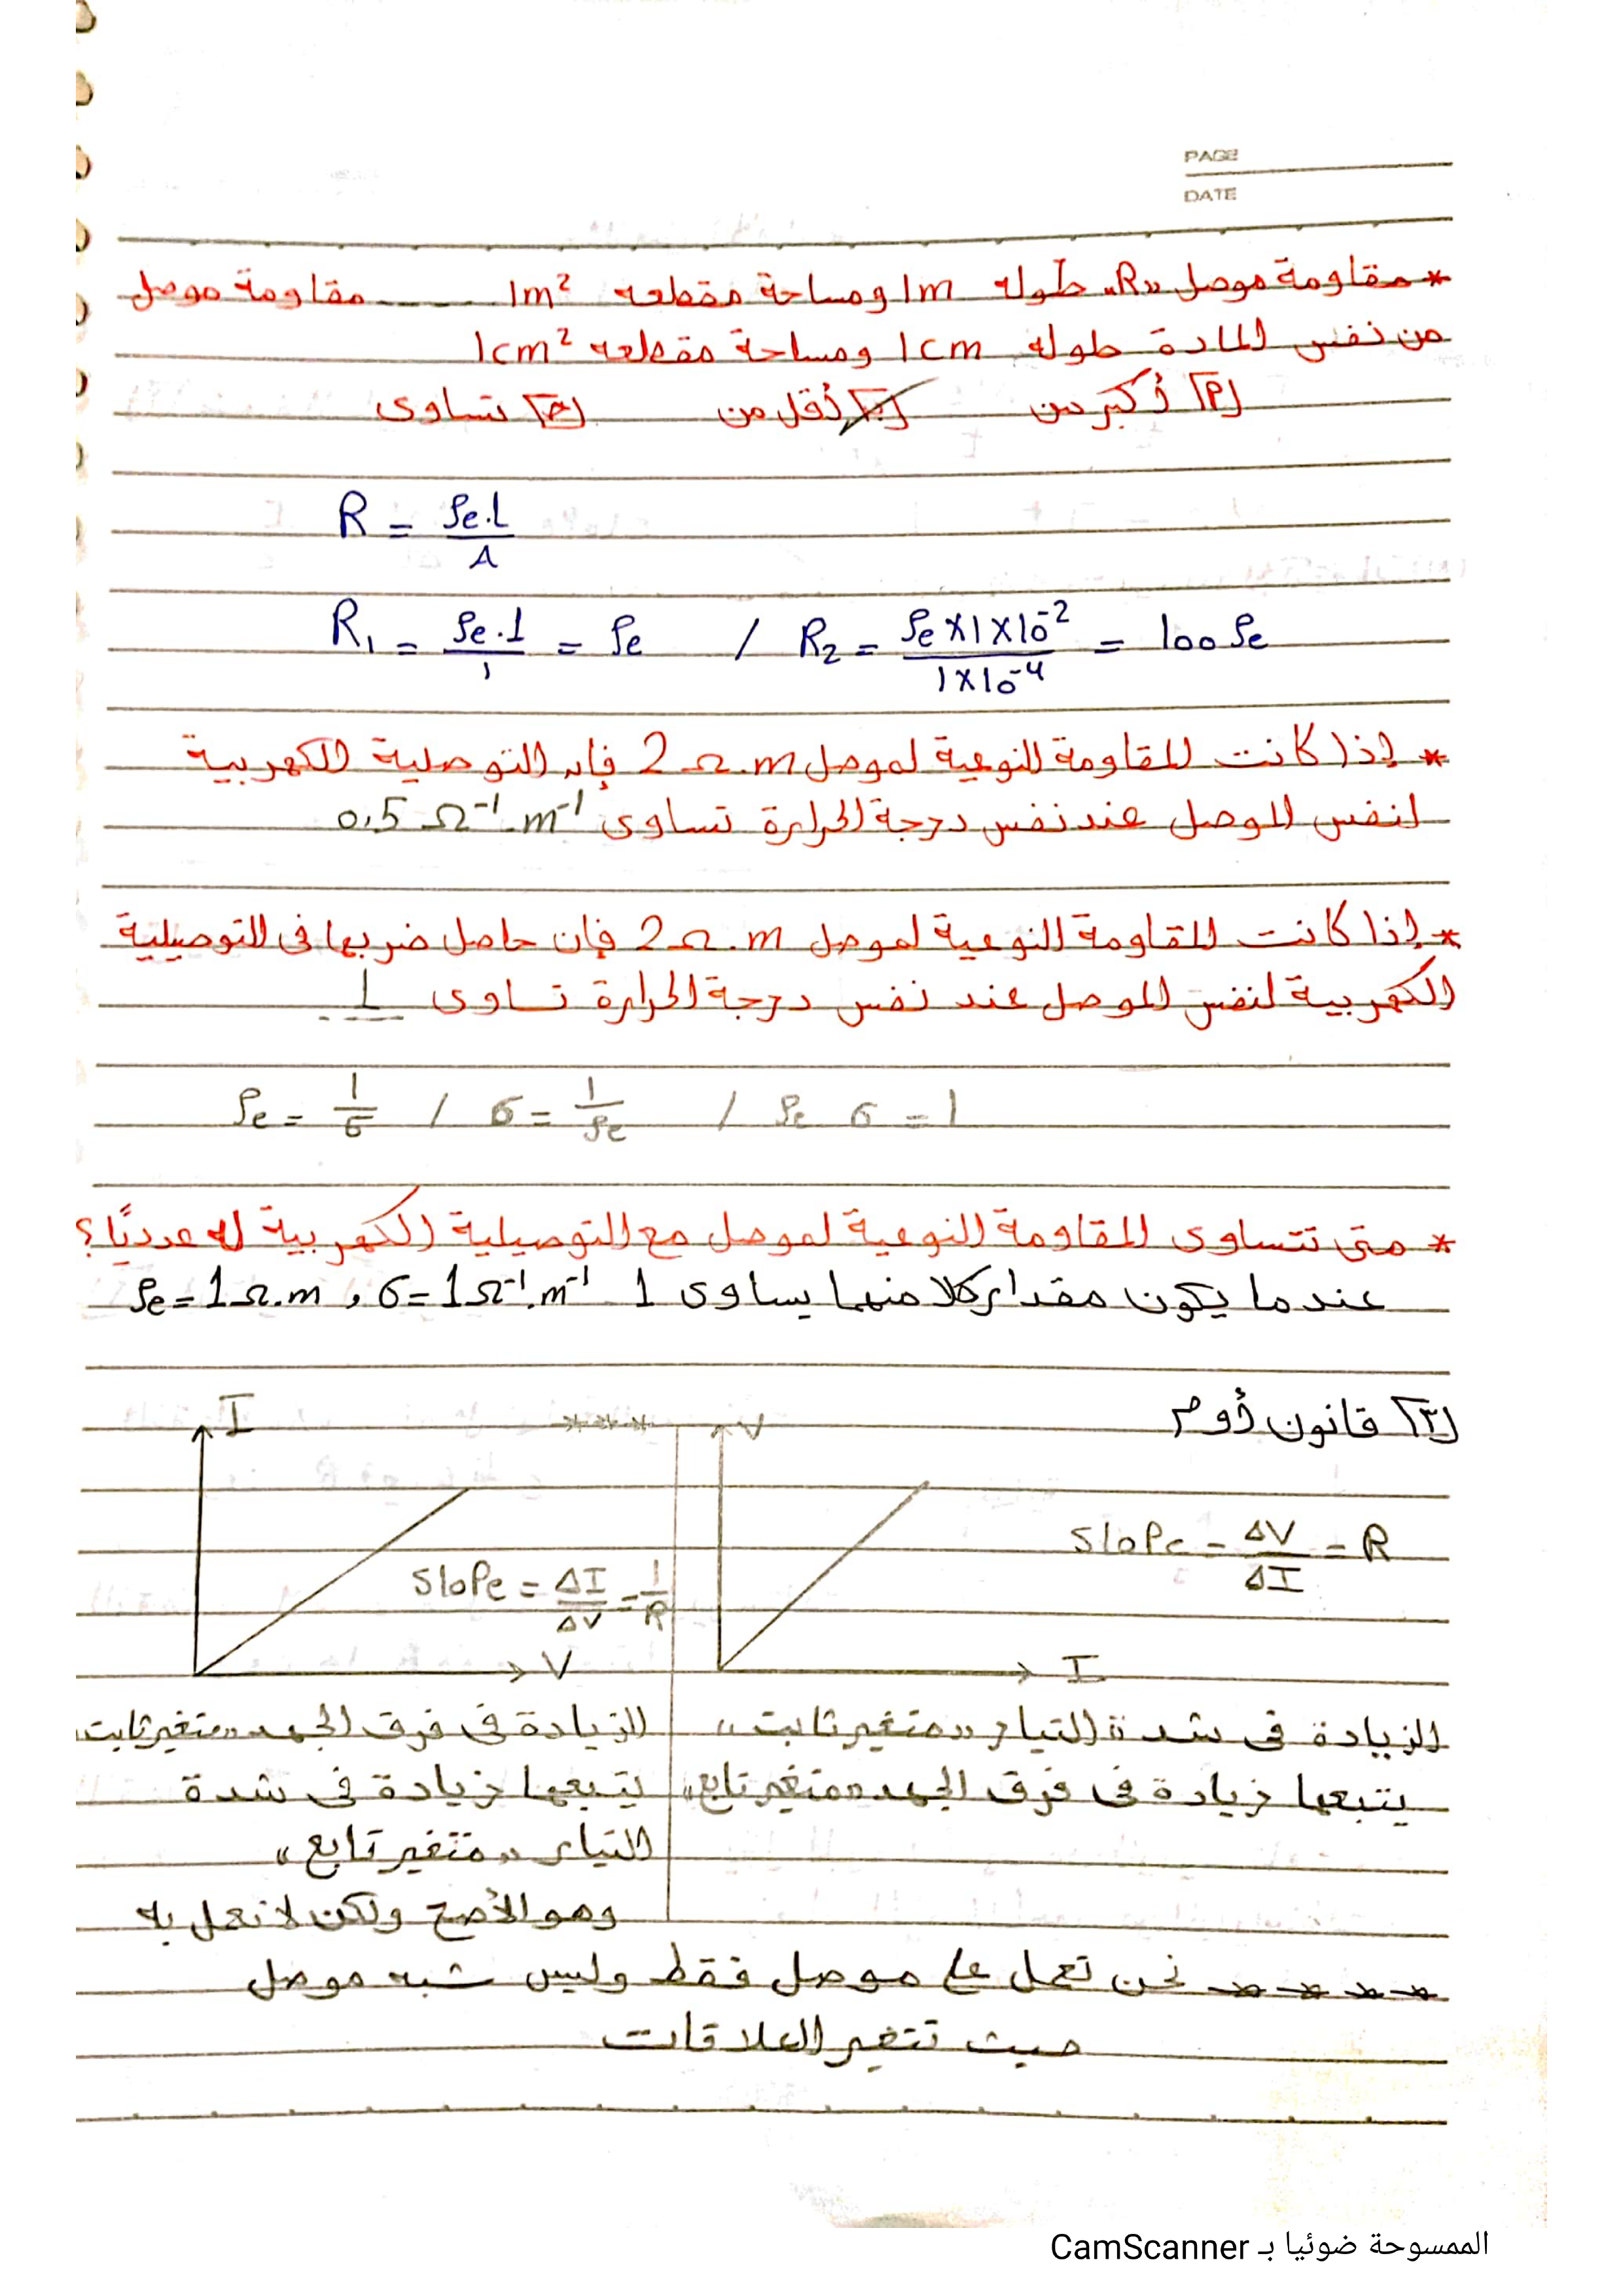 PAGE
DATE
* مقاومة موصل "R" طوله 1m ومساحة مقطعه 1m² ـــــ مقاومة موصل
من نفس المادة طوله 1cm ومساحة مقطعه 1cm²
[أ] أكبر من [ب] أقل من [ج] تساوى
R = ρe.L / A
R₁ = ρe.1 / 1 = ρe / R₂ = ρe×1×10⁻² / 1×10⁻⁴ = 100 ρe
* إذا كانت المقاومة النوعية لموصل 2 Ω.m فإن التوصلية الكهربية
لنفس الموصل عند نفس درجة الحرارة تساوى 0.5 Ω⁻¹.m⁻¹
* إذا كانت المقاومة النوعية لموصل 2 Ω.m فإن حاصل ضربها فى التوصيلية
الكهربية لنفس الموصل عند نفس درجة الحرارة تساوى 1
ρe = 1/σ / σ = 1/ρe / ρe σ = 1
* متى تتساوى المقاومة النوعية لموصل مع التوصيلية الكهربية له عدديًا؟
عندما يكون مقدار كلا منهما يساوى 1 ρe = 1 Ω.m , σ = 1 Ω⁻¹.m⁻¹
[٣] قانون أوم
V
***
I
Slope = ΔV/ΔI = R
Slope = ΔI/ΔV = 1/R
I
V
الزيادة فى شدة التيار "متغير ثابت"
يتبعها زيادة فى فرق الجهد "متغير تابع"
الزيادة فى فرق الجهد "متغير ثابت
يتبعها زيادة فى شدة
التيار "متغير تابع"
وهو الأصح ولكن لا نعمل به
**** نحن نعمل على موصل فقط وليس شبه موصل
حيث تتغير العلاقات
الممسوحة ضوئيا بـ CamScanner